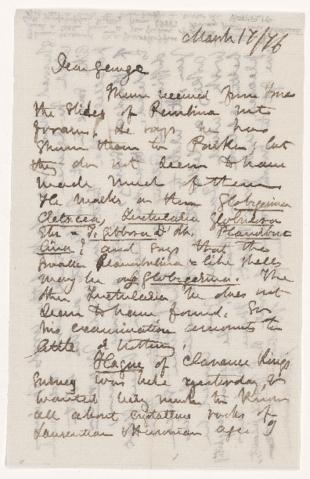 March 17/76
Dear George
Have received from Dana
the slides of Pembina Mt
Forams. He says he has
shown them to Parker, but
they do not seem to have
made much of them
He marks on them Globigerina
Cretacea, Textularia Globulosa
Ehr = T. gibbosa D'Orb, Planorbulina
 and says that the
 Planorbulina like shells
may be only Globigerina. The
other Textularia he does not
seem to have found. So
his examination amounts to
little or nothing.
Hague of Clarence Kings
Survey was here yesterday, &
wanted very much to know
all about crystalline rocks of
Laurentian & Huronian age of